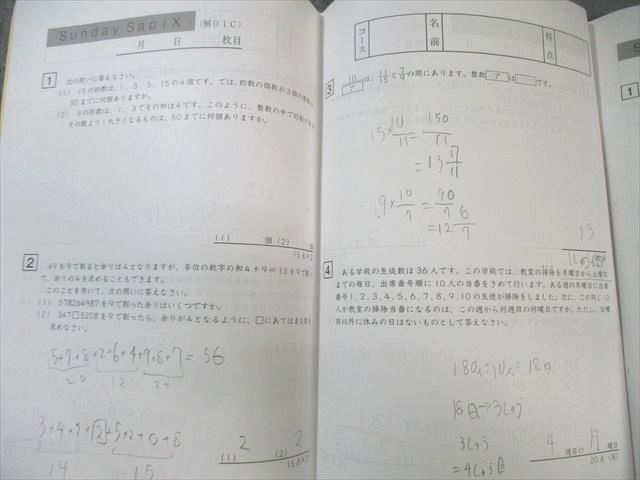 Sunday SapiX (解01C)
月 日 枚目
1 次の問いに答えなさい。
(1) 15の約数は、1、3、5、15の4個です。では、約数の個数が3個の整数は
50までに何個ありますか。
(2) 3の約数は、1、3でその和は4です。このように、整数の中で約数の和が
その数より1大きくなるものは、50までに何個ありますか。
(1) 個 (2)
15点×2
2 49を9で割ると余りは4となりますが、各位の数字の和4+9=13を9で割っ
て、余りの4を求めることもできます。
このことを用いて、次の問いに答えなさい。
(1) 578264987を9で割った余りはいくつですか。
(2) 347□5208を9で割ったら、余りが4となるように、□にあてはまる
求めなさい。
5+7+8+2+6+4+9+8+7=56
20 12 24
3+4+7+2+5+2+0+8
14 15
(1) 2 (2) 2
15点×2
コース 名前 得点
3 10/ア は、11/15と7/9の間にあります。整数 ア は です。
15×10/11=150/11
=13 7/11
9×10/7=90/7
=12 6/7
13
4 ある学級の生徒数は36人です。この学級では、教室の掃除を月曜日から土曜日
までの毎日、出席番号順に10人の当番をきめて行います。ある週の月曜日に出席
番号1、2、3、4、5、6、7、8、9、10の生徒が掃除をしました。次に、この同じ10
人が教室の掃除当番になるのは、この週から何週目の何曜日ですか。ただし、日曜
日以外に休みの日はないものとして答えなさい。
180人÷10人=18日
18日→3しゅう
3しゅう
=4しゅう目
4 週目の 月 曜日
20点(完)
1